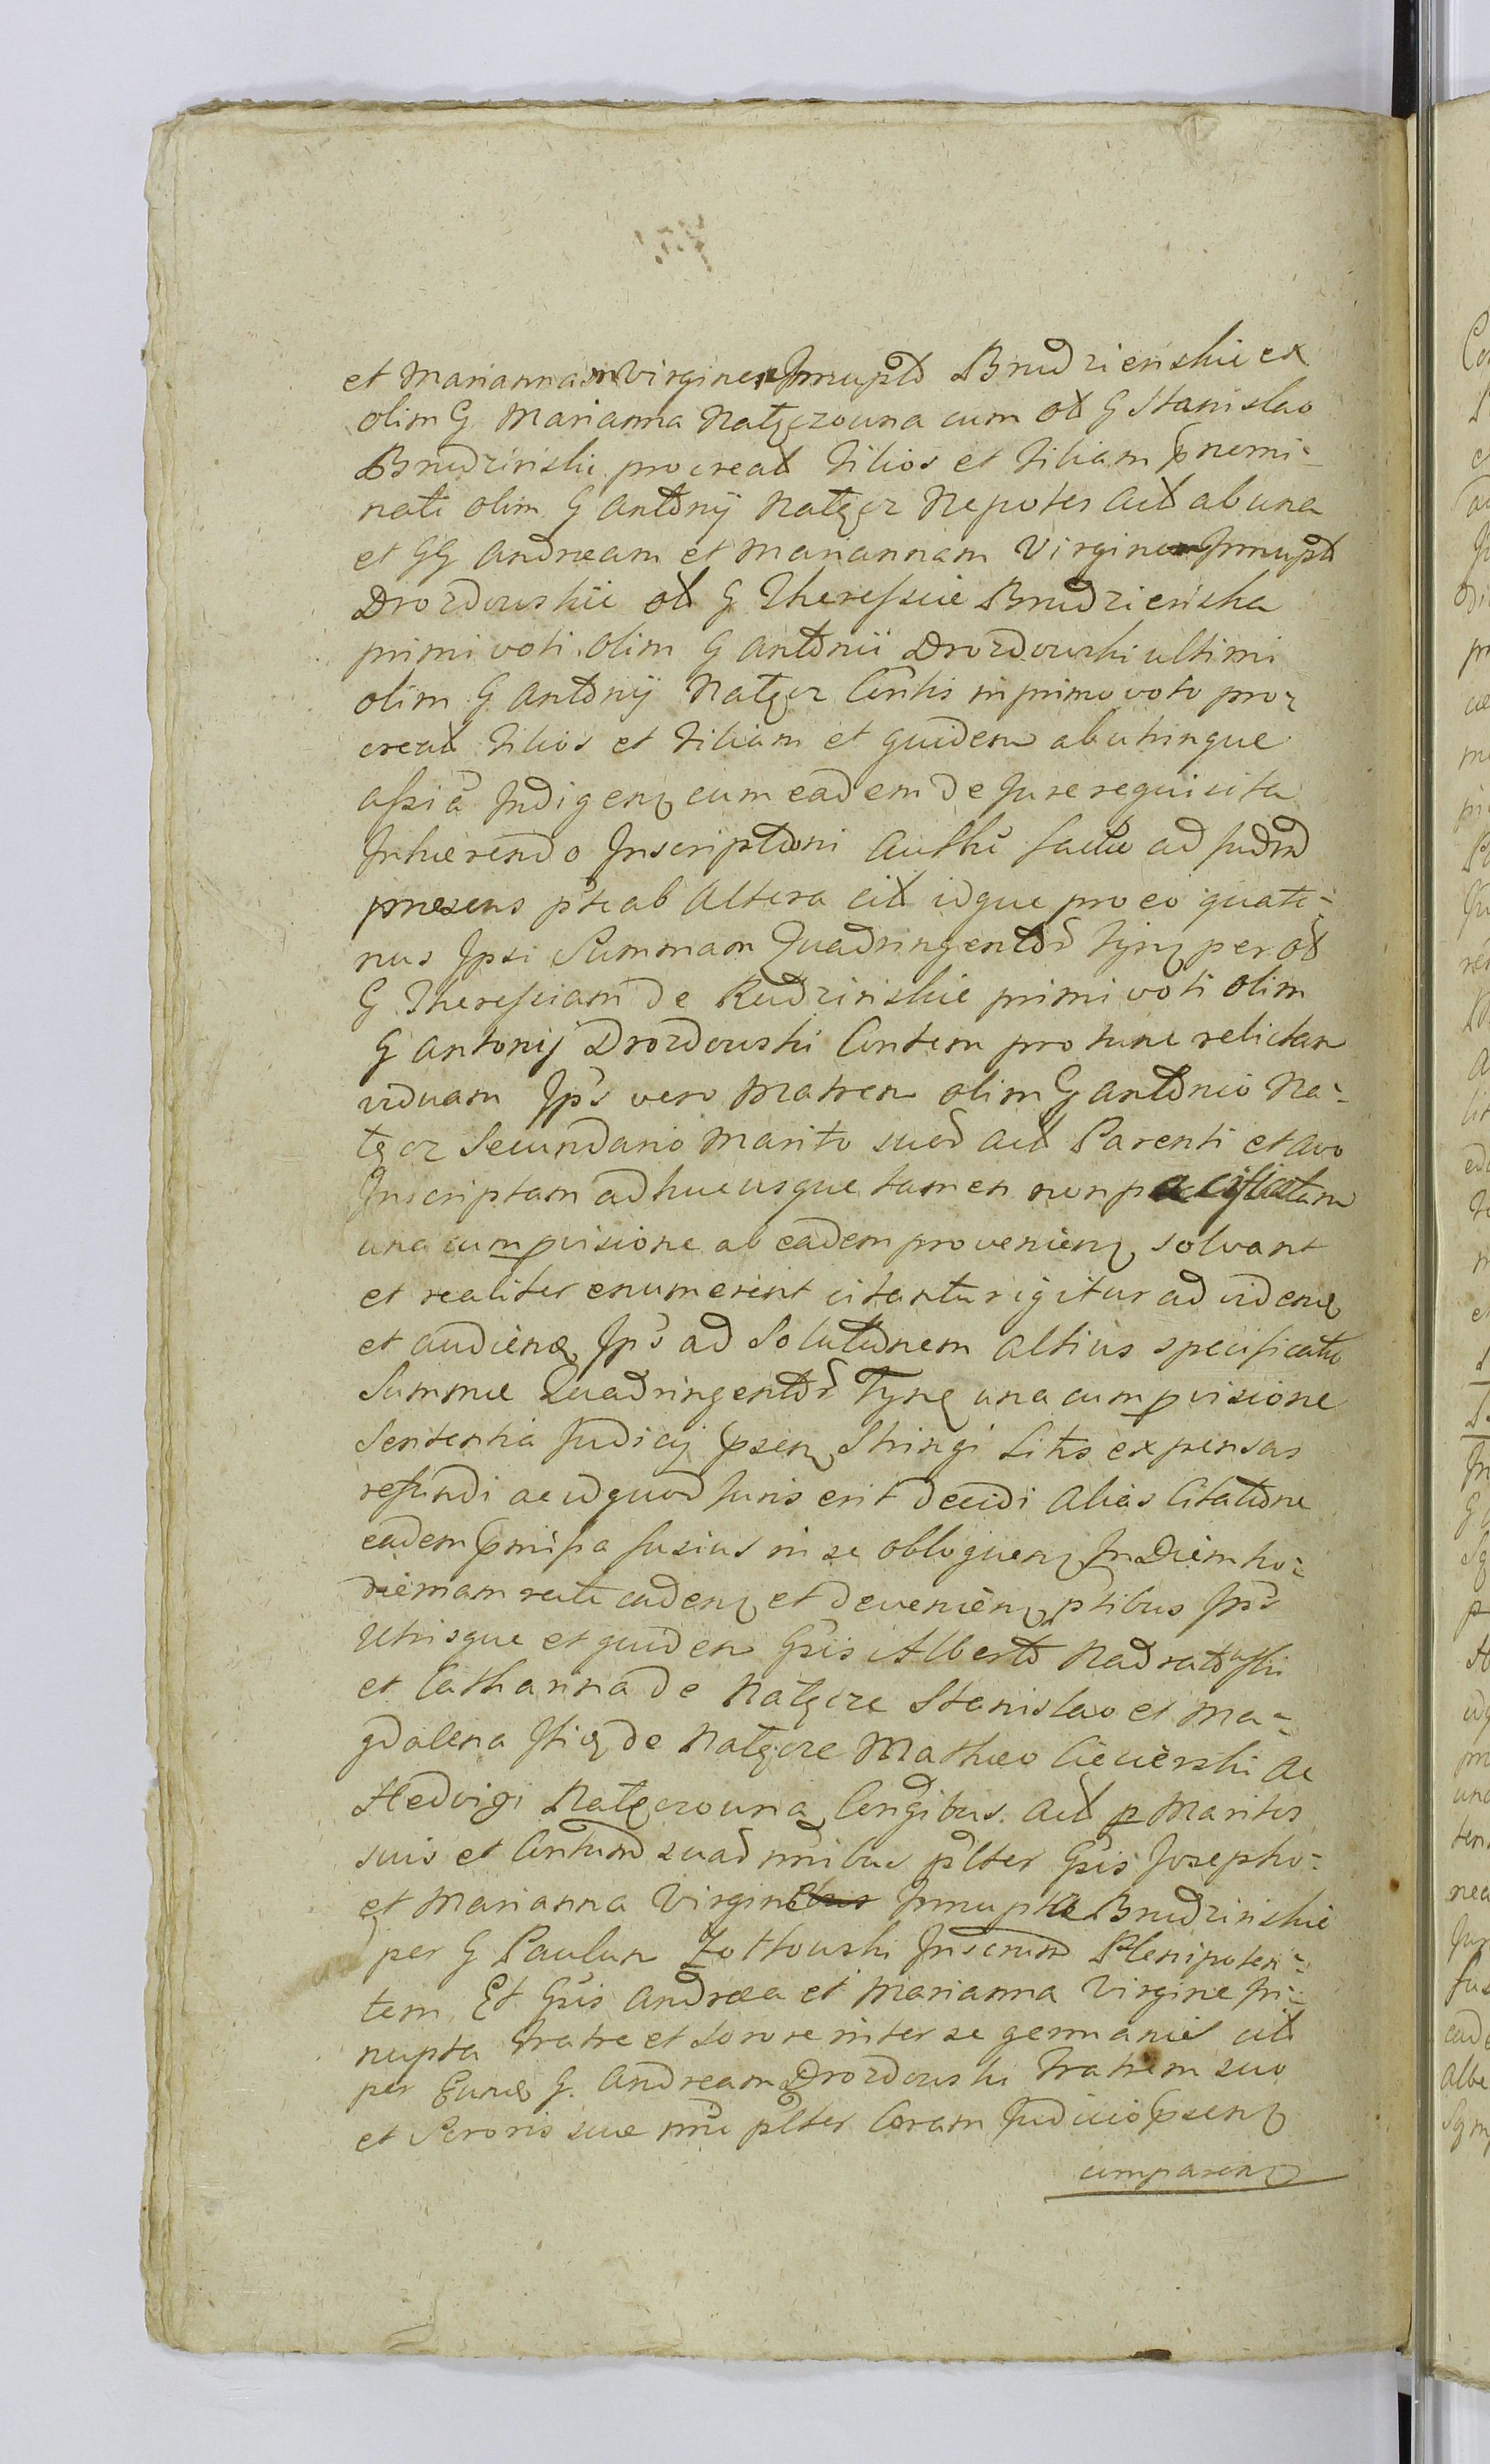 et Mariannam Virginem Innuptā Brudzienskie ex
olim G Marianna Natęczowna cum olī G Stanislao
Brudzinski procreat Filios et Filiam pnomi-
nati olim G Antonij Natęcz Nepotes act ab una
et GG Andream et Mariannam Virginem Innupt
Drozdowskie olī G Theressiæ Brudzienska
primi voti olim G Antonii Drozdowski ultimi
olim G Antonij Natęcz Cōntis in primo voto pro-
creat Filios et Filiam et quidem ab utrinque
assiā Indigen cum eadem de Jure requisita
Inhærendo Inscriptioni Authī factæ ad Judm
præsens pte ab Altera cit idque pro eo quate-
nus Ipsi Summam Quadringentor Tÿn per olī
G Theressiam de Rudzinskie primi voti olim
G Antonij Drozdowski Contem pro tunc relictam
viduam Ips vero Matrem olim G Antonio Na-
tęcz Secundario Marito suo act Parenti et Avo
Inscriptam adhucusque tamen non pacificatam
una cum pvisione ab eadem provenien solvant
et realiter enumerent citantur igitur ad viden
et audien Ips ad Solutionem altius specificatæ
Summæ Quadringentor Tyn una cum pvisione
Sententia Judicij psen Stringi Litis expensas
refundi ac id quod Juris erit decidi Alias Citatione
eadem pmissa fusius in se obloquen In Diem ho-
diernam recte caden et devenien ptibus Ips
Utrisque et quidem Gsis Alberto Nadratowski
et Catharina de Natęcze Stanislao et Ma-
gdalena de Natęcze Mathæo Ciecierski ac
Hedvigi Natęczowna Congibus act p Maritos
suis et Contum suar nnibus plter Gsis Josepho
et Marianna Virgine Innupta Brudzinskie
per G Paulum Zottowski Inscrium Plenipoten-
tem Et Gsis Andrea et Marianna Virgine In-
nupta Fratre et Sorore inter se germanis cit
per Eun G. Andream Drozdowski Fratrem suo
et Sororis suæ nni plter Coram Judicio psen
comparen